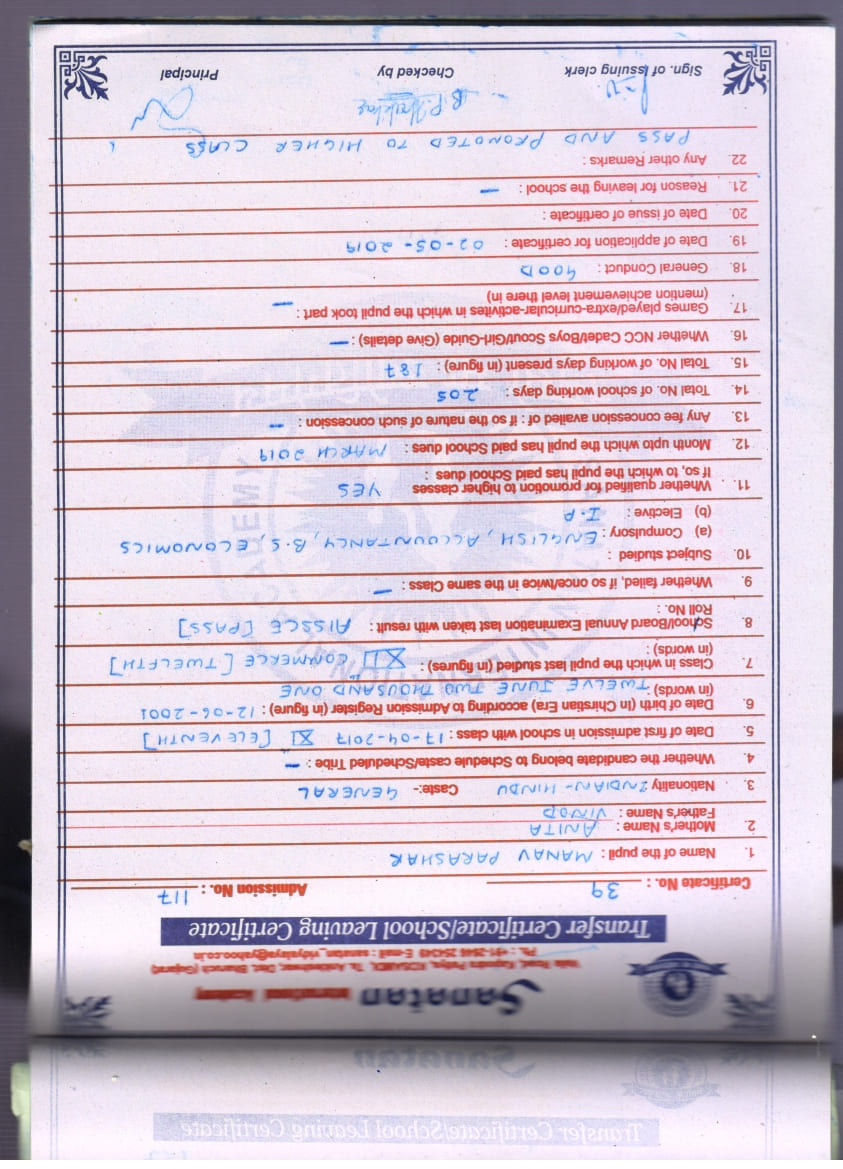 Sanatan International Academy
Valia Road, Kapodra Patiya, KOSAMDI, Ta. Ankleshwar, Dist. Bharuch (Gujarat)
Ph. : +91-2646 254349 E-mail : sanatan_vidyalaya@yahoo.co.in
Transfer Certificate/School Leaving Certificate
Certificate No. : 39 Admission No. : 117
1. Name of the pupil : MANAV PARASHAR
2. Mother's Name : ANITA
Father's Name : VINOD
3. Nationality INDIAN-HINDU Caste:- GENERAL
4. Whether the candidate belong to Schedule caste/Scheduled Tribe : —
5. Date of first admission in school with class : 17-04-2017 XI [ELEVENTH]
6. Date of birth (In Chirstian Era) according to Admission Register (in figure) : 12-06-2001
(in words) : TWELVE JUNE TWO THOUSAND ONE
7. Class in which the pupil last studied (in figures) : XII COMMERCE [TWELFTH]
(in words) :
8. School/Board Annual Examination last taken with result : AISSCE [PASS]
Roll No. :
9. Whether failed, if so once/twice in the same Class : —
10. Subject studied :
(a) Compulsory : ENGLISH, ACCOUNTANCY, B.S, ECONOMICS
(b) Elective : I.P
11. Whether qualified for promotion to higher classes YES
If so, to which the pupil has paid School dues :
12. Month upto which the pupil has paid School dues : MARCH 2019
13. Any fee concession availed of : if so the nature of such concession : —
14. Total No. of school working days : 205
15. Total No. of working days present (in figure) : 187
16. Whether NCC Cadet/Boys Scout/Girl-Guide (Give details) : —
17. Games played/extra-curricular-activites in which the pupil took part : —
(mention achievement level there in)
18. General Conduct : GOOD
19. Date of application for certificate : 02-05-2019
20. Date of issue of certificate :
21. Reason for leaving the school : —
22. Any other Remarks :
PASS AND PROMOTED TO HIGHER CLASS
Sign. of issuing clerk Checked by Principal